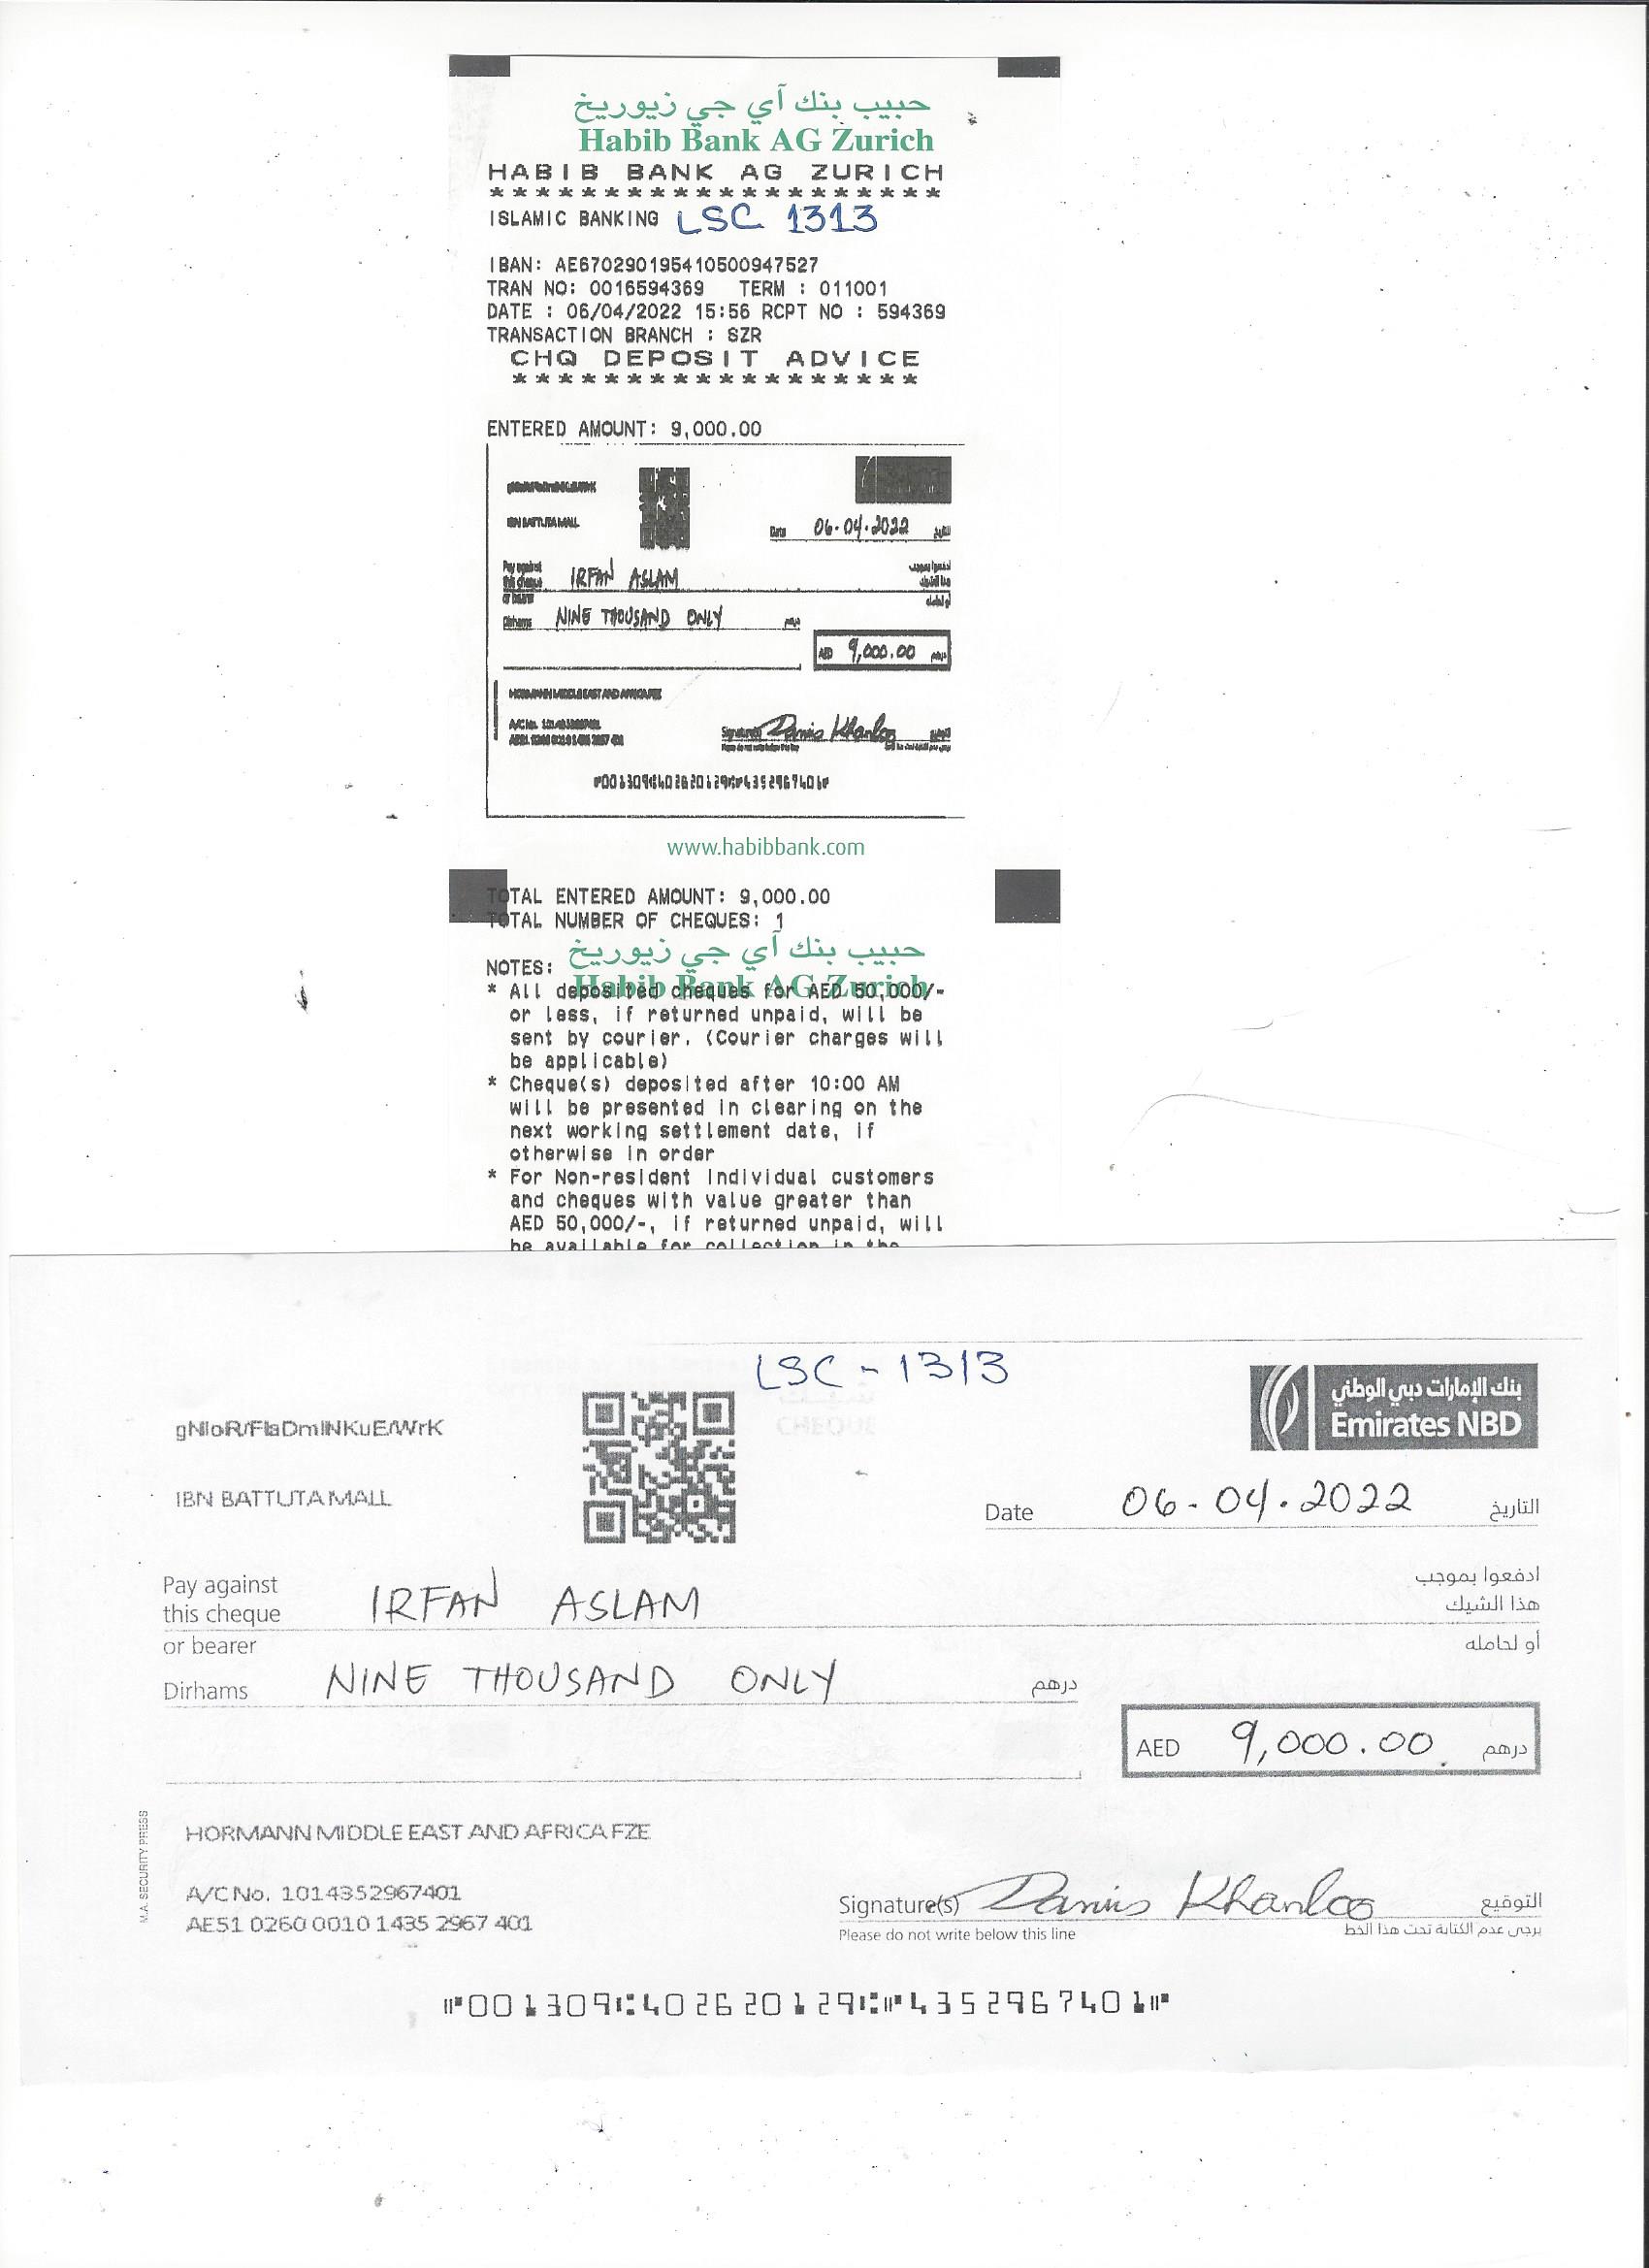 حبيب بنك آي جي زيوريخ
Habib Bank AG Zurich
HABIB BANK AG ZURICH
********************
ISLAMIC BANKING LSC 1313
IBAN: AE670290195410500947527
TRAN NO: 0016594369 TERM : 011001
DATE : 06/04/2022 15:56 RCPT NO : 594369
TRANSACTION BRANCH : SZR
CHQ DEPOSIT ADVICE
******************
ENTERED AMOUNT: 9,000.00
IBN BATTUTA MALL
Date 06-04-2022 التاريخ
Pay against
this cheque IRFAN ASLAM
or bearer
Dirhams NINE THOUSAND ONLY درهم
AED 9,000.00 درهم
HORMANN MIDDLE EAST AND AFRICA FZE
Signature(s) Danius Khanloo
www.habibbank.com
TOTAL ENTERED AMOUNT: 9,000.00
TOTAL NUMBER OF CHEQUES: 1
حبيب بنك آي جي زيوريخ
NOTES:
Habib Bank AG Zurich
* All deposited cheques for AED 50,000/-
or less, if returned unpaid, will be
sent by courier. (Courier charges will
be applicable)
* Cheque(s) deposited after 10:00 AM
will be presented in clearing on the
next working settlement date, if
otherwise in order
* For Non-resident Individual customers
and cheques with value greater than
AED 50,000/-, if returned unpaid, will
be available for collection in the
LSC - 1313
بنك الإمارات دبي الوطني
Emirates NBD
gNloR/FlaDmlNKuE/WrK
IBN BATTUTA MALL
Date 06-04.2022 التاريخ
Pay against ادفعوا بموجب
this cheque IRFAN ASLAM هذا الشيك
or bearer أو لحامله
Dirhams NINE THOUSAND ONLY درهم
AED 9,000.00 درهم
M.A. SECURITY PRESS
HORMANN MIDDLE EAST AND AFRICA FZE
A/C No. 1014352967401
AE51 0260 0010 1435 2967 401
Signature(s) Danius Khanloo التوقيع
Please do not write below this line يرجى عدم الكتابة تحت هذا الخط
⑈001309⑆402620129⑆⑈4352967401⑈